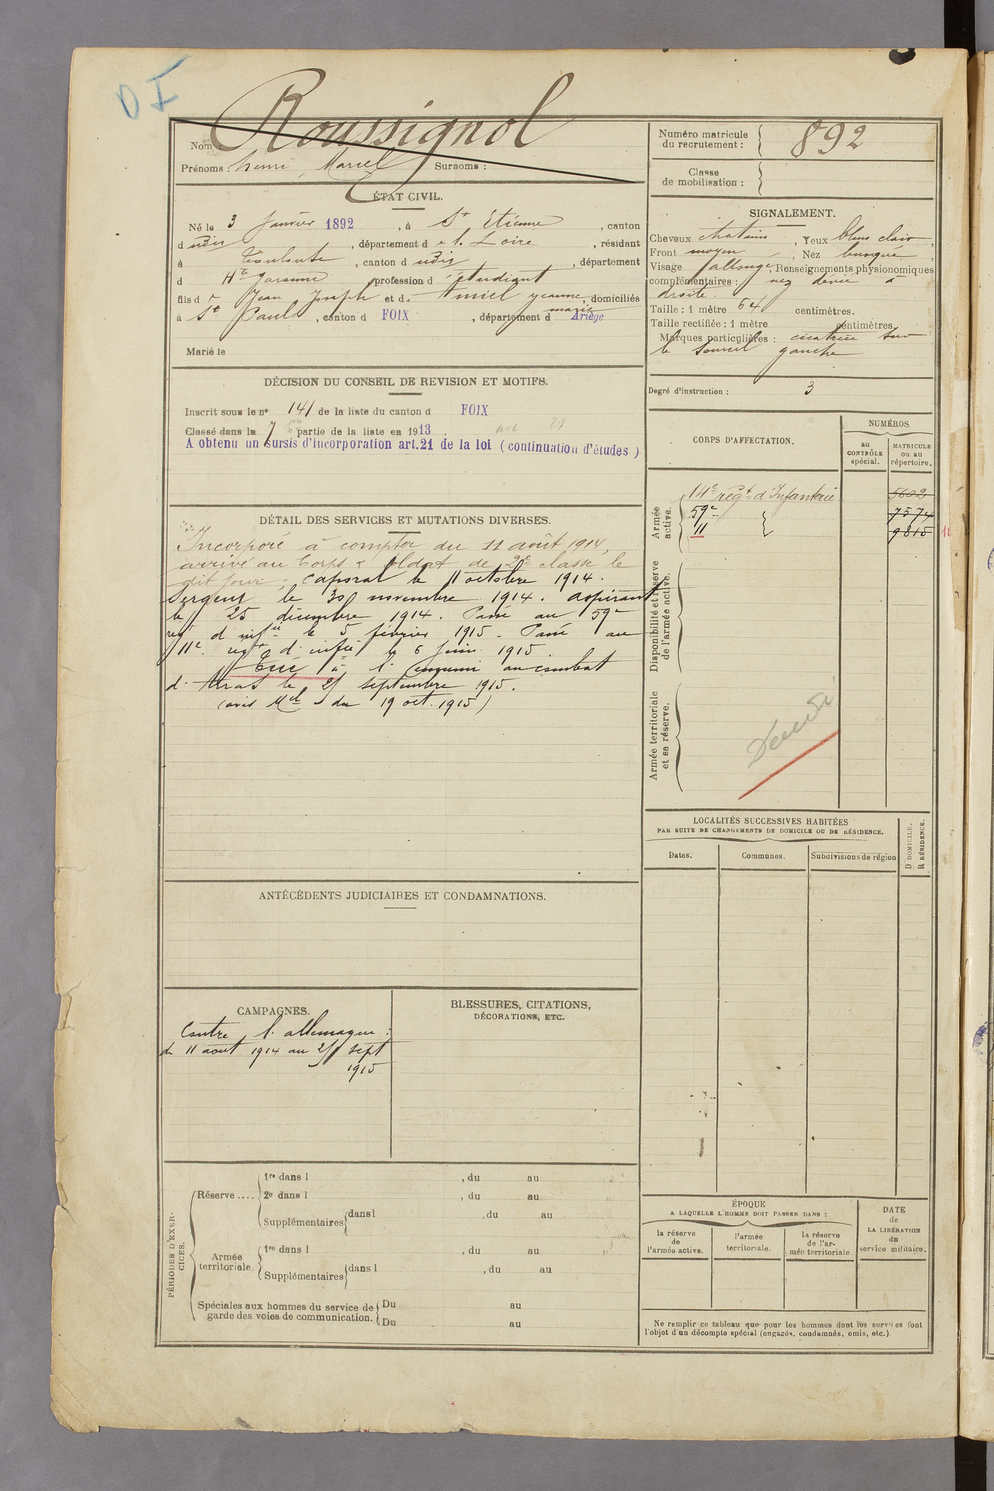 D I
Nom : Roussignol
Prénoms : henri, Marcel Surnoms :
Numéro matricule du recrutement : 892
Classe de mobilisation :
ÉTAT CIVIL.
Né le 3 Janvier 1892, à St Etienne, canton
d udis, département d e l. Loire, résidant
à Toulouse, canton d udis, département
d Hte Garonne, profession d' étudiant
fils d e Jean Joseph et d e miel jeanne, domiciliés
marie
à St Paul, canton d FOIX, département d Ariège
Marié le
SIGNALEMENT.
Cheveux chatains, Yeux bleus clair,
Front moyen, Nez busqué,
Visage allongé, Renseignements physionomiques
complémentaires : nez dévié à
droite.
Taille : 1 mètre 64 centimètres.
Taille rectifiée : 1 mètre centimètres.
Marques particulières : cicatrice sur
le sourcil gauche
Degré d'instruction : 3
DÉCISION DU CONSEIL DE REVISION ET MOTIFS.
Inscrit sous le n° 141 de la liste du canton d FOIX
Classé dans la 7 partie de la liste en 1913 art 21
A obtenu un sursis d'incorporation art.21 de la loi (continuation d'études)
CORPS D'AFFECTATION.
NUMÉROS
au CONTRÔLE spécial.
MATRICULE ou au répertoire.
Armée active.
14e regt d'Infanterie 5602
59e 7574
11 9815
Disponibilité et réserve de l'armée active.
Armée territoriale et sa réserve.
DÉTAIL DES SERVICES ET MUTATIONS DIVERSES.
Incorporé à compter du 11 août 1914,
arrivé au Corps & soldat de 2e classe le
dit jour ; caporal le 11 octobre 1914.
Sergent le 30 novembre 1914. aspirant
le 25 décembre 1914. Passé au 59e
regt d'infie le 5 février 1915. Passé au
11e regt d'infie le 6 juin 1915.
Tué à l'ennemi au combat
d'Arras le 25 septembre 1915.
(avis Mel du 19 oct. 1915)
LOCALITÉS SUCCESSIVES HABITÉES
PAR SUITE DE CHANGEMENTS DE DOMICILE OU DE RÉSIDENCE.
Dates. Communes. Subdivisions de région
D DOMICILE. R RÉSIDENCE.
ANTÉCÉDENTS JUDICIAIRES ET CONDAMNATIONS.
CAMPAGNES.
Contre l'allemagne :
du 11 août 1914 au 25 sept
1915
BLESSURES, CITATIONS,
DÉCORATIONS, ETC.
PÉRIODES D'EXERCICES.
Réserve ....
1re dans l , du au
2e dans l , du au
Supplémentaires dans l , du au
Armée territoriale.
1re dans l , du au
Supplémentaires dans l , du au
Spéciales aux hommes du service de garde des voies de communication.
Du au
Du au
ÉPOQUE
A LAQUELLE L'HOMME DOIT PASSER DANS :
la réserve de l'armée active.
l'armée territoriale.
la réserve de l'armée territoriale.
DATE de LA LIBÉRATION du service militaire.
Ne remplir ce tableau que pour les hommes dont les services font
l'objet d'un décompte spécial (engagés, condamnés, omis, etc.)